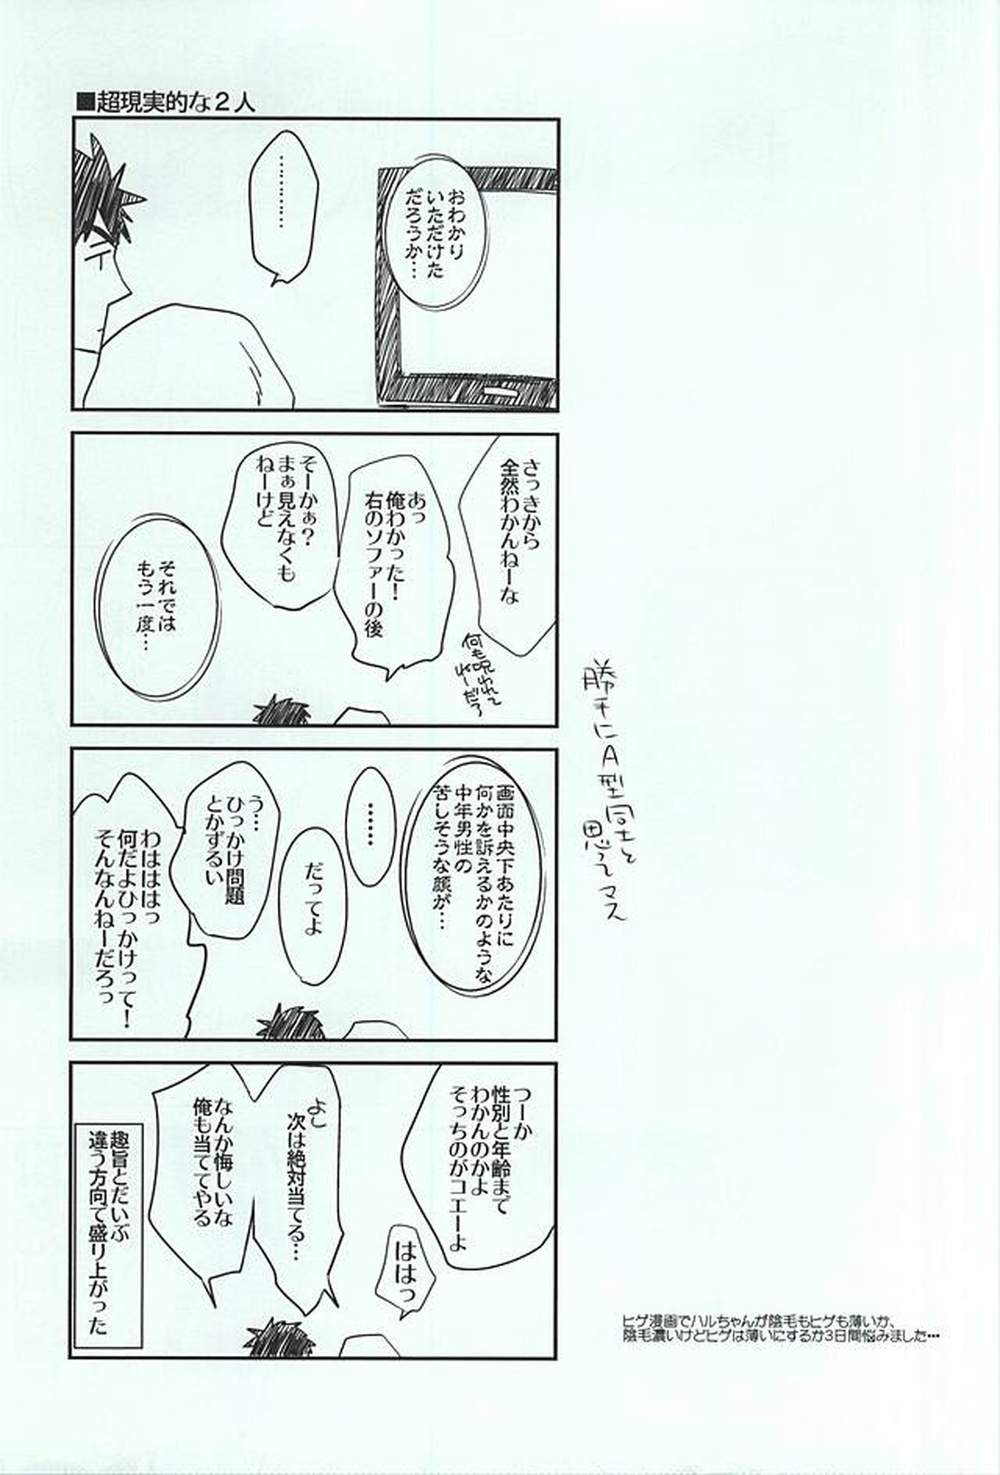 ■超現実的な2人
おわかり
いただけた
だろうか…
…………
さっきから
全然わかんねーな
あっ
俺わかった！
右のソファーの後
そーかぁ？
まぁ見えなくも
ねーけど
それでは
もう一度…
画面中央下あたりに
何かを訴えるかのような
中年男性の
苦しそうな顔が…
……
だってよ
う…
ひっかけ問題
とかずるい
わはははっ
何だよひっかけって！
そんなんねーだろっ
つーか
性別と年齢まで
わかんのかよ
そっちのがコエーよ
ははっ
よし
次は絶対当てる…
なんか悔しいな
俺も当ててやる
趣旨とだいぶ
違う方向で盛り上がった
勝手にA型同士と
思ってマス
ヒゲ漫画でハルちゃんが陰毛もヒゲも薄いか、
陰毛濃いけどヒゲは薄いにするか3日間悩みました…